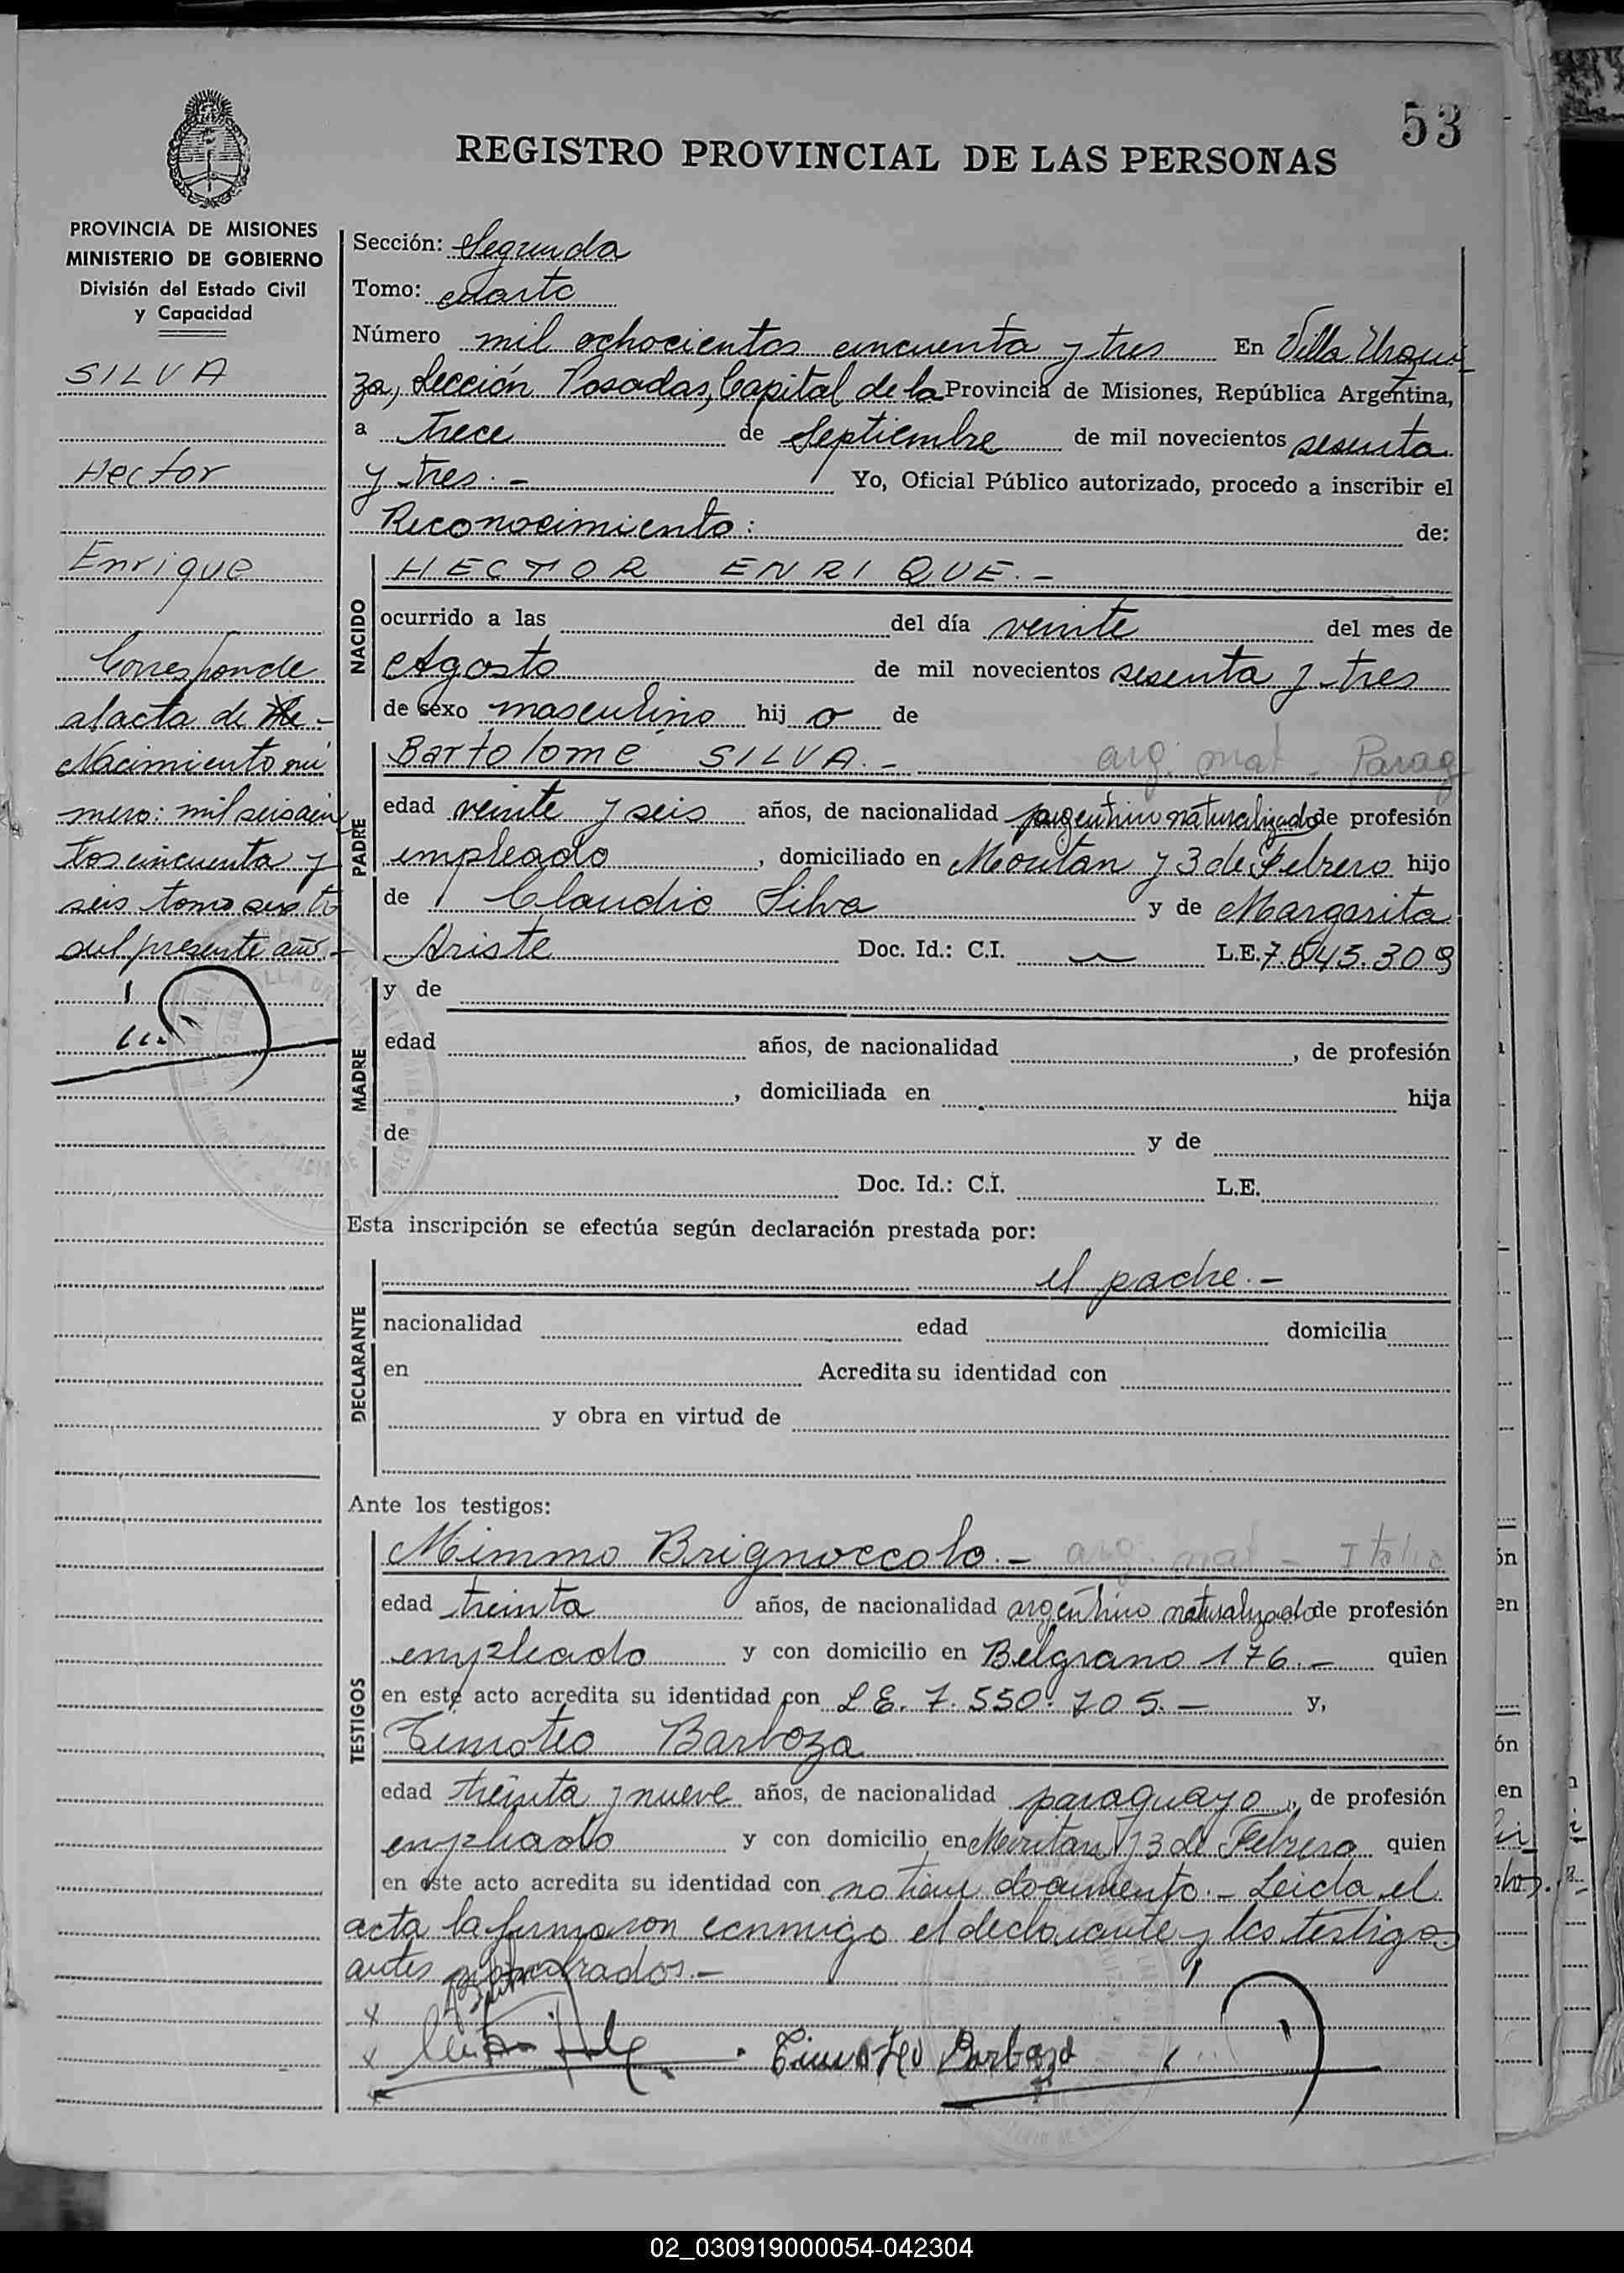 53
REGISTRO PROVINCIAL DE LAS PERSONAS
PROVINCIA DE MISIONES
MINISTERIO DE GOBIERNO
División del Estado Civil
y Capacidad
SILVA
Hector
Enrique
Corresponde
al acta de
Nacimiento nú
mero: mil seiscien
tos cincuenta y
seis tomo sexto
del presente año.-
Sección: Segunda
Tomo: cuarto
Número mil ochocientos cincuenta y tres En Villa Urqui
za, Sección Posadas, Capital de la Provincia de Misiones, República Argentina,
a trece de Septiembre de mil novecientos sesenta
y tres.- Yo, Oficial Público autorizado, procedo a inscribir el
Reconocimiento: de:
NACIDO
HECTOR ENRIQUE.-
ocurrido a las del día veinte del mes de
Agosto de mil novecientos sesenta y tres
de sexo masculino hijo de
PADRE
Bartolomé SILVA.- arg. nat - Parag
edad veinte y seis años, de nacionalidad argentino naturalizado de profesión
empleado, domiciliado en y 3 de Febrero hijo
de Claudio Silva y de Margarita
Ariste Doc. Id.: C.I. L.E. 7.545.309
MADRE
y de
edad años, de nacionalidad , de profesión
, domiciliada en hija
de y de
Doc. Id.: C.I. L.E.
Esta inscripción se efectúa según declaración prestada por:
DECLARANTE
el padre.-
nacionalidad edad domicilia
en Acredita su identidad con
y obra en virtud de
Ante los testigos:
TESTIGOS
Mimmo Brignoccolo.- arg. nat - Italia
edad treinta años, de nacionalidad argentino naturalizado de profesión
empleado y con domicilio en Belgrano 176.- quien
en este acto acredita su identidad con L.E. 7.550.705.- y,
Timoteo Barboza
edad treinta y nueve años, de nacionalidad paraguayo, de profesión
empleado y con domicilio en y 3 de Febrero quien
en este acto acredita su identidad con no tiene documento.- Leida el
acta la firmaron conmigo el declarante y los testigos
antes nombrados.-
Timoteo Barboza
02_030919000054-042304